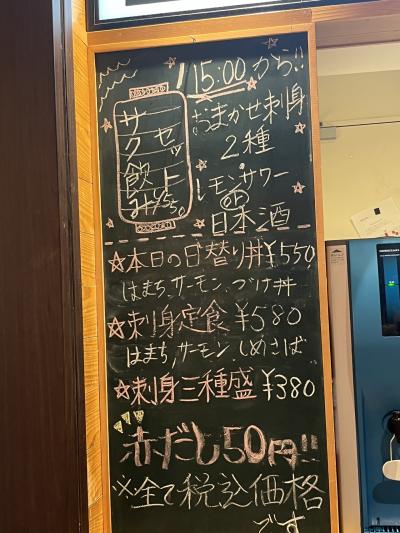 15:00から!!
サク飲み
セット
¥550
おまかせ刺身
2種
レモンサワー
or
日本酒
☆本日の日替り丼¥550
はまち、サーモン、づけ丼
☆刺身定食 ¥580
はまち、サーモン、しめさば
☆刺身三種盛 ¥380
赤だし50円!!
※全て税込価格
です